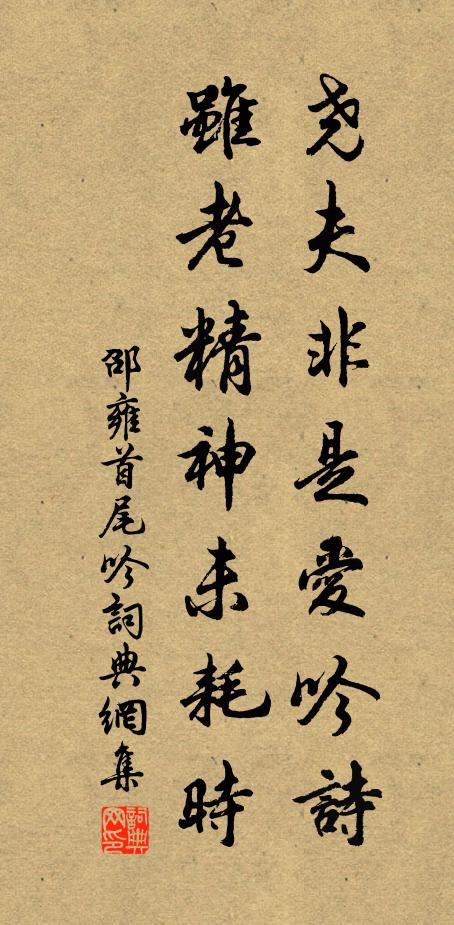 尧夫非是愛吟詩
雖老精神未耗時
邵雍首尾吟詞典網集
詞典網印